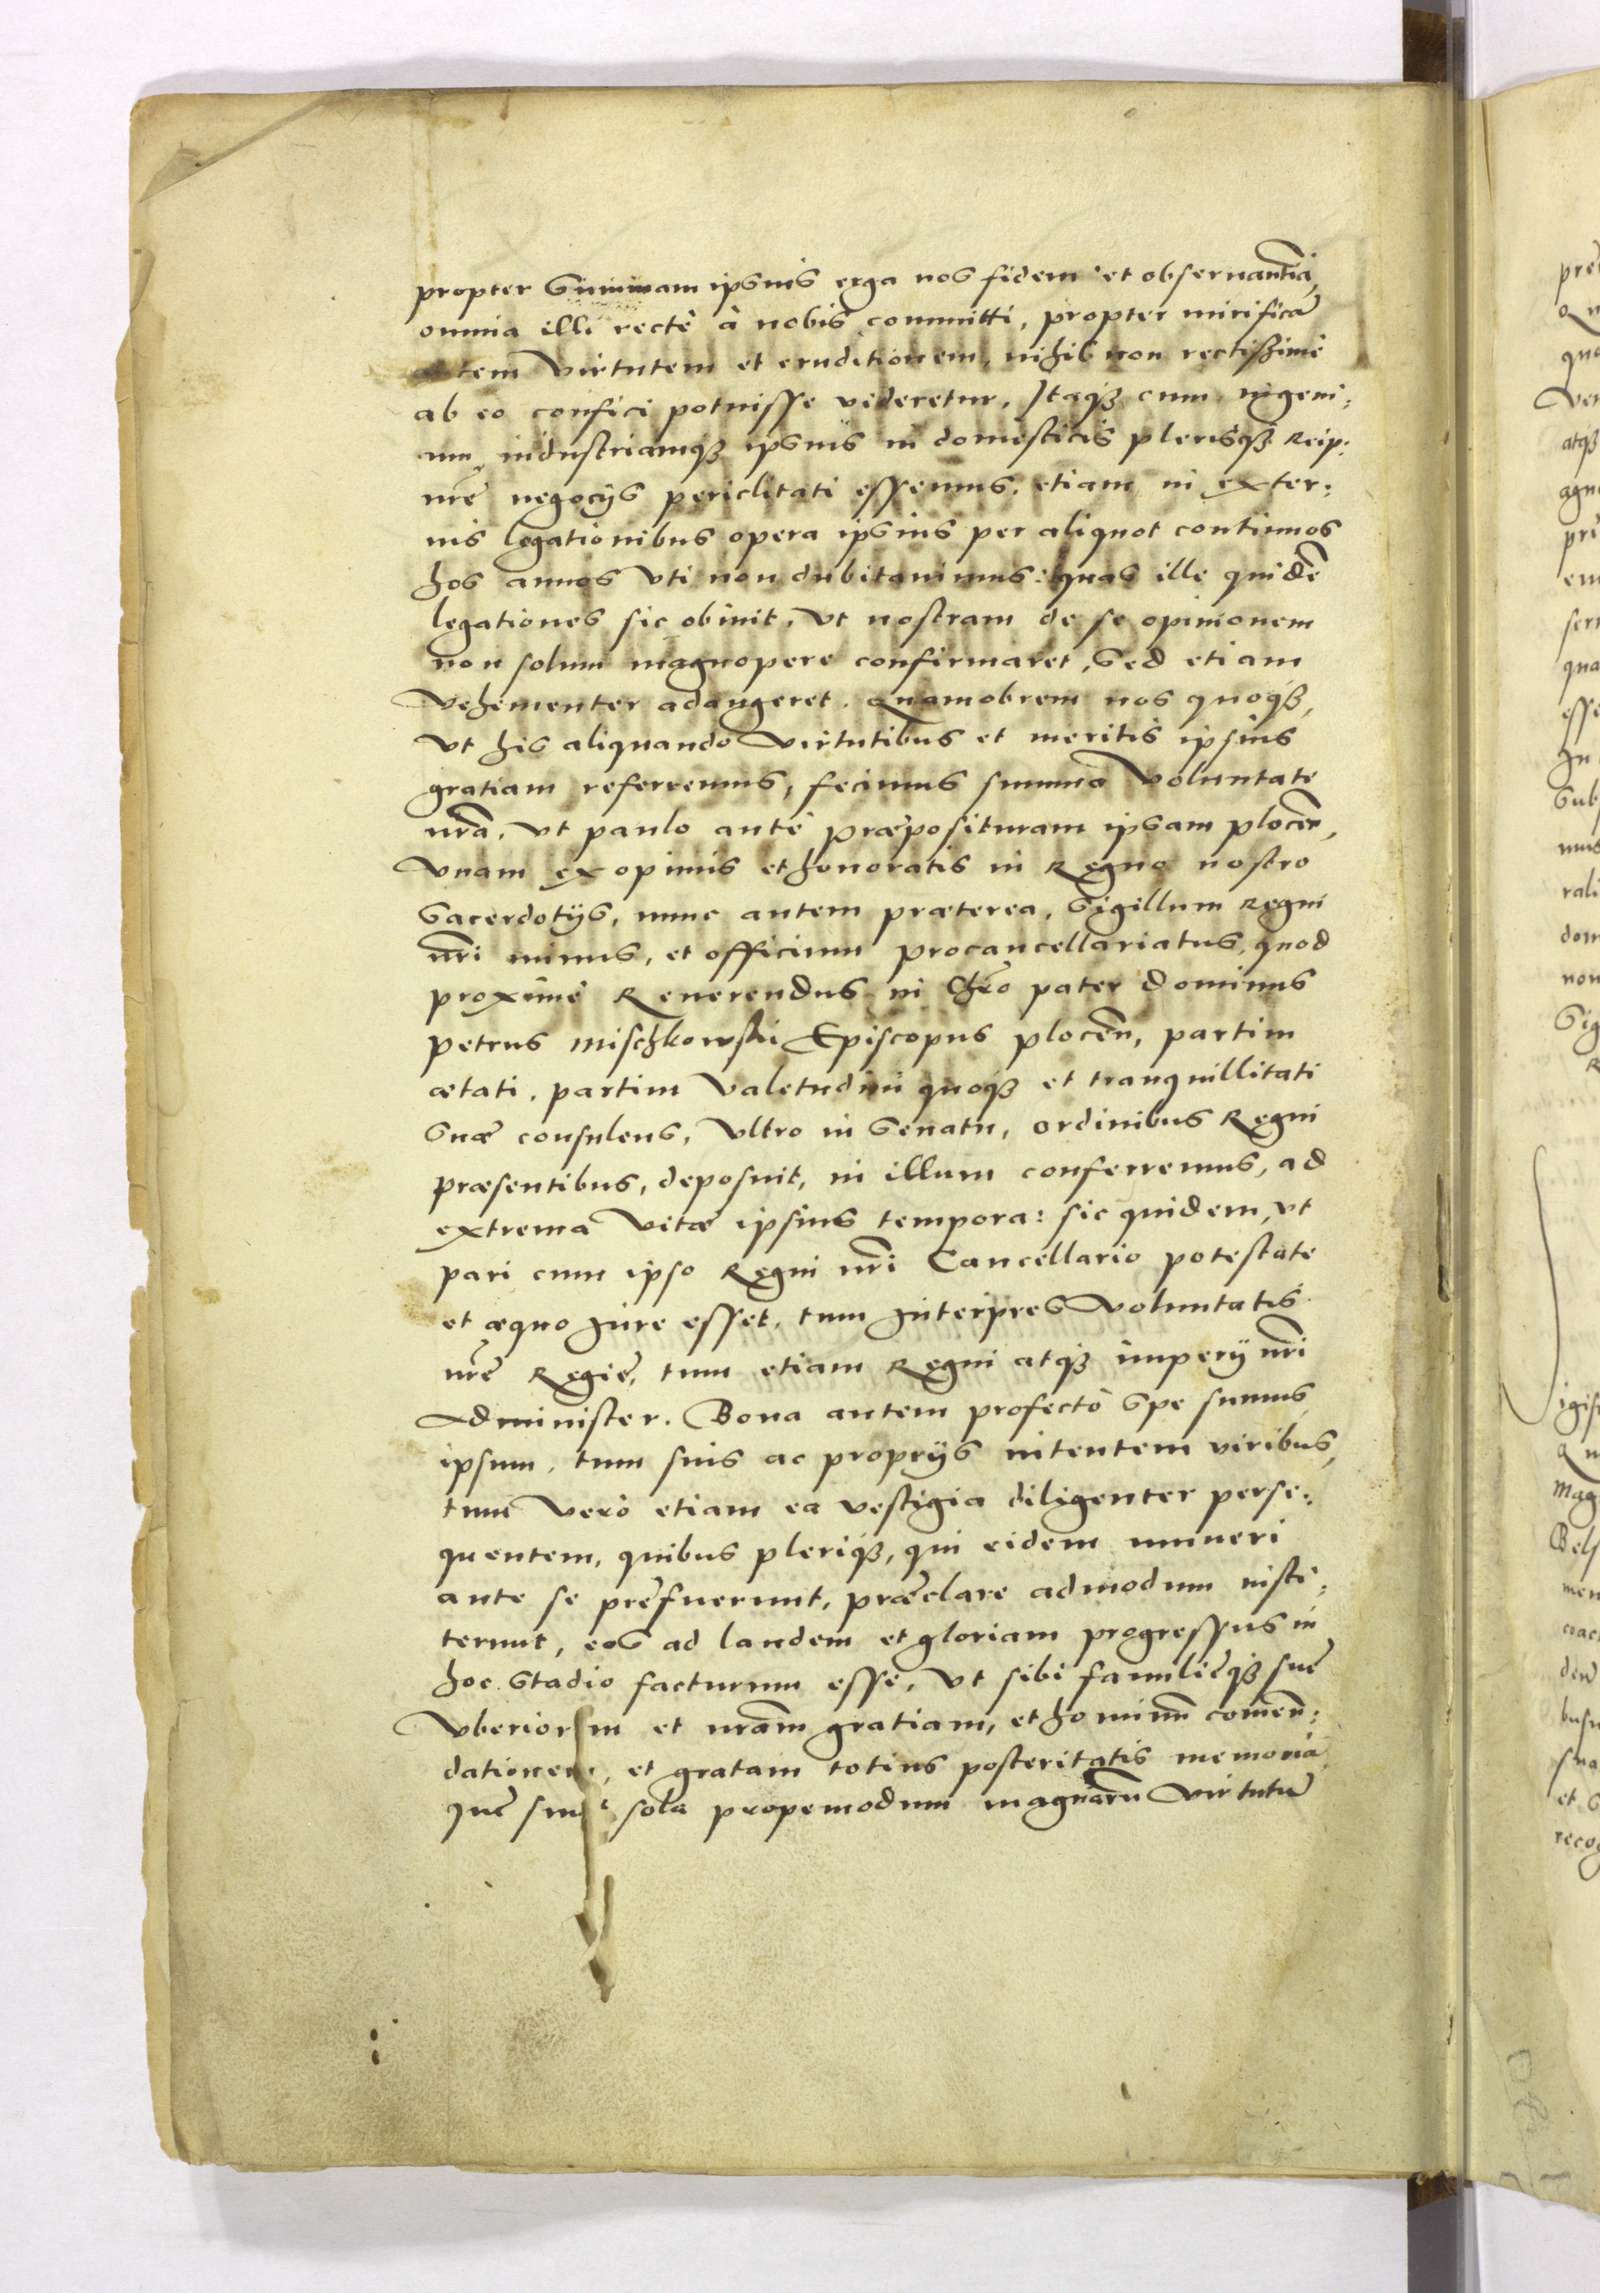 propter summam ipsius erga nos fidem et obseruantiã,
omnia illi rectè à nobis committi, propter mirificã
autem virtutem et eruditionem, nihil non rectißimè
ab eo confici potuisse videretur. Itaqȝ cum ingeni:
um, industriamqȝ ipsius in domesticis plerisqȝ Reip:
nr̃e negocijs periclitati essemus, etiam in exter:
nis legationibus opera ipsius per aliquot continuos
hos annos vti non dubitauimus: quas ille quidẽ
legationes sic obiuit, vt nostram de se opinionem
non solum magnopere confirmaret, sed etiam
vehementer adaugeret. Quamobrem nos quoqȝ,
vt his aliquando virtutibus et meritis ipsius
gratiam referremus, fecimus summa voluntate
nr̃a, vt paulo antè præposituram ipsam plocen̄,
vnam ex opimis et honoratis in Regno nostro
sacerdotijs, nunc autem præterea, sigillum Regni
nr̃i minus, et officium procancellariatus, quod
proximè Reuerendus in Chr̃o pater Dominus
Petrus Mischkowski Episcopus plocen̄, partim
ætati, partim valetudini quoqȝ et tranquillitati
suæ consulens, vltro in senatu, ordinibus Regni
præsentibus, deposuit, in illum conferremus, ad
extrema vitæ ipsius tempora: sic quidem, vt
pari cum ipso Regni nr̃i Cancellario potestate
et æquo iure esset, tum interpres voluntatis
nr̃e Regię, tum etiam Regni atqȝ imperij nr̃i
Administer. Bona autem profectò spe sumus
ipsum, tum suis ac proprijs nitentem viribus,
tum verò etiam ea vestigia diligenter perse:
quentem, quibus pleriqȝ, qui eidem muneri
ante se pręfuerunt, præclare admodum insti:
terunt, eos ad laudem et gloriam progressus in
hoc stadio facturum esse, vt sibi familięqȝ suę
vberiorem et nr̃am gratiam, et hominũ comen̄:
dationem, et gratam totius posteritatis memoriã
quę sunt sola propemodum magnarũ virtutũ